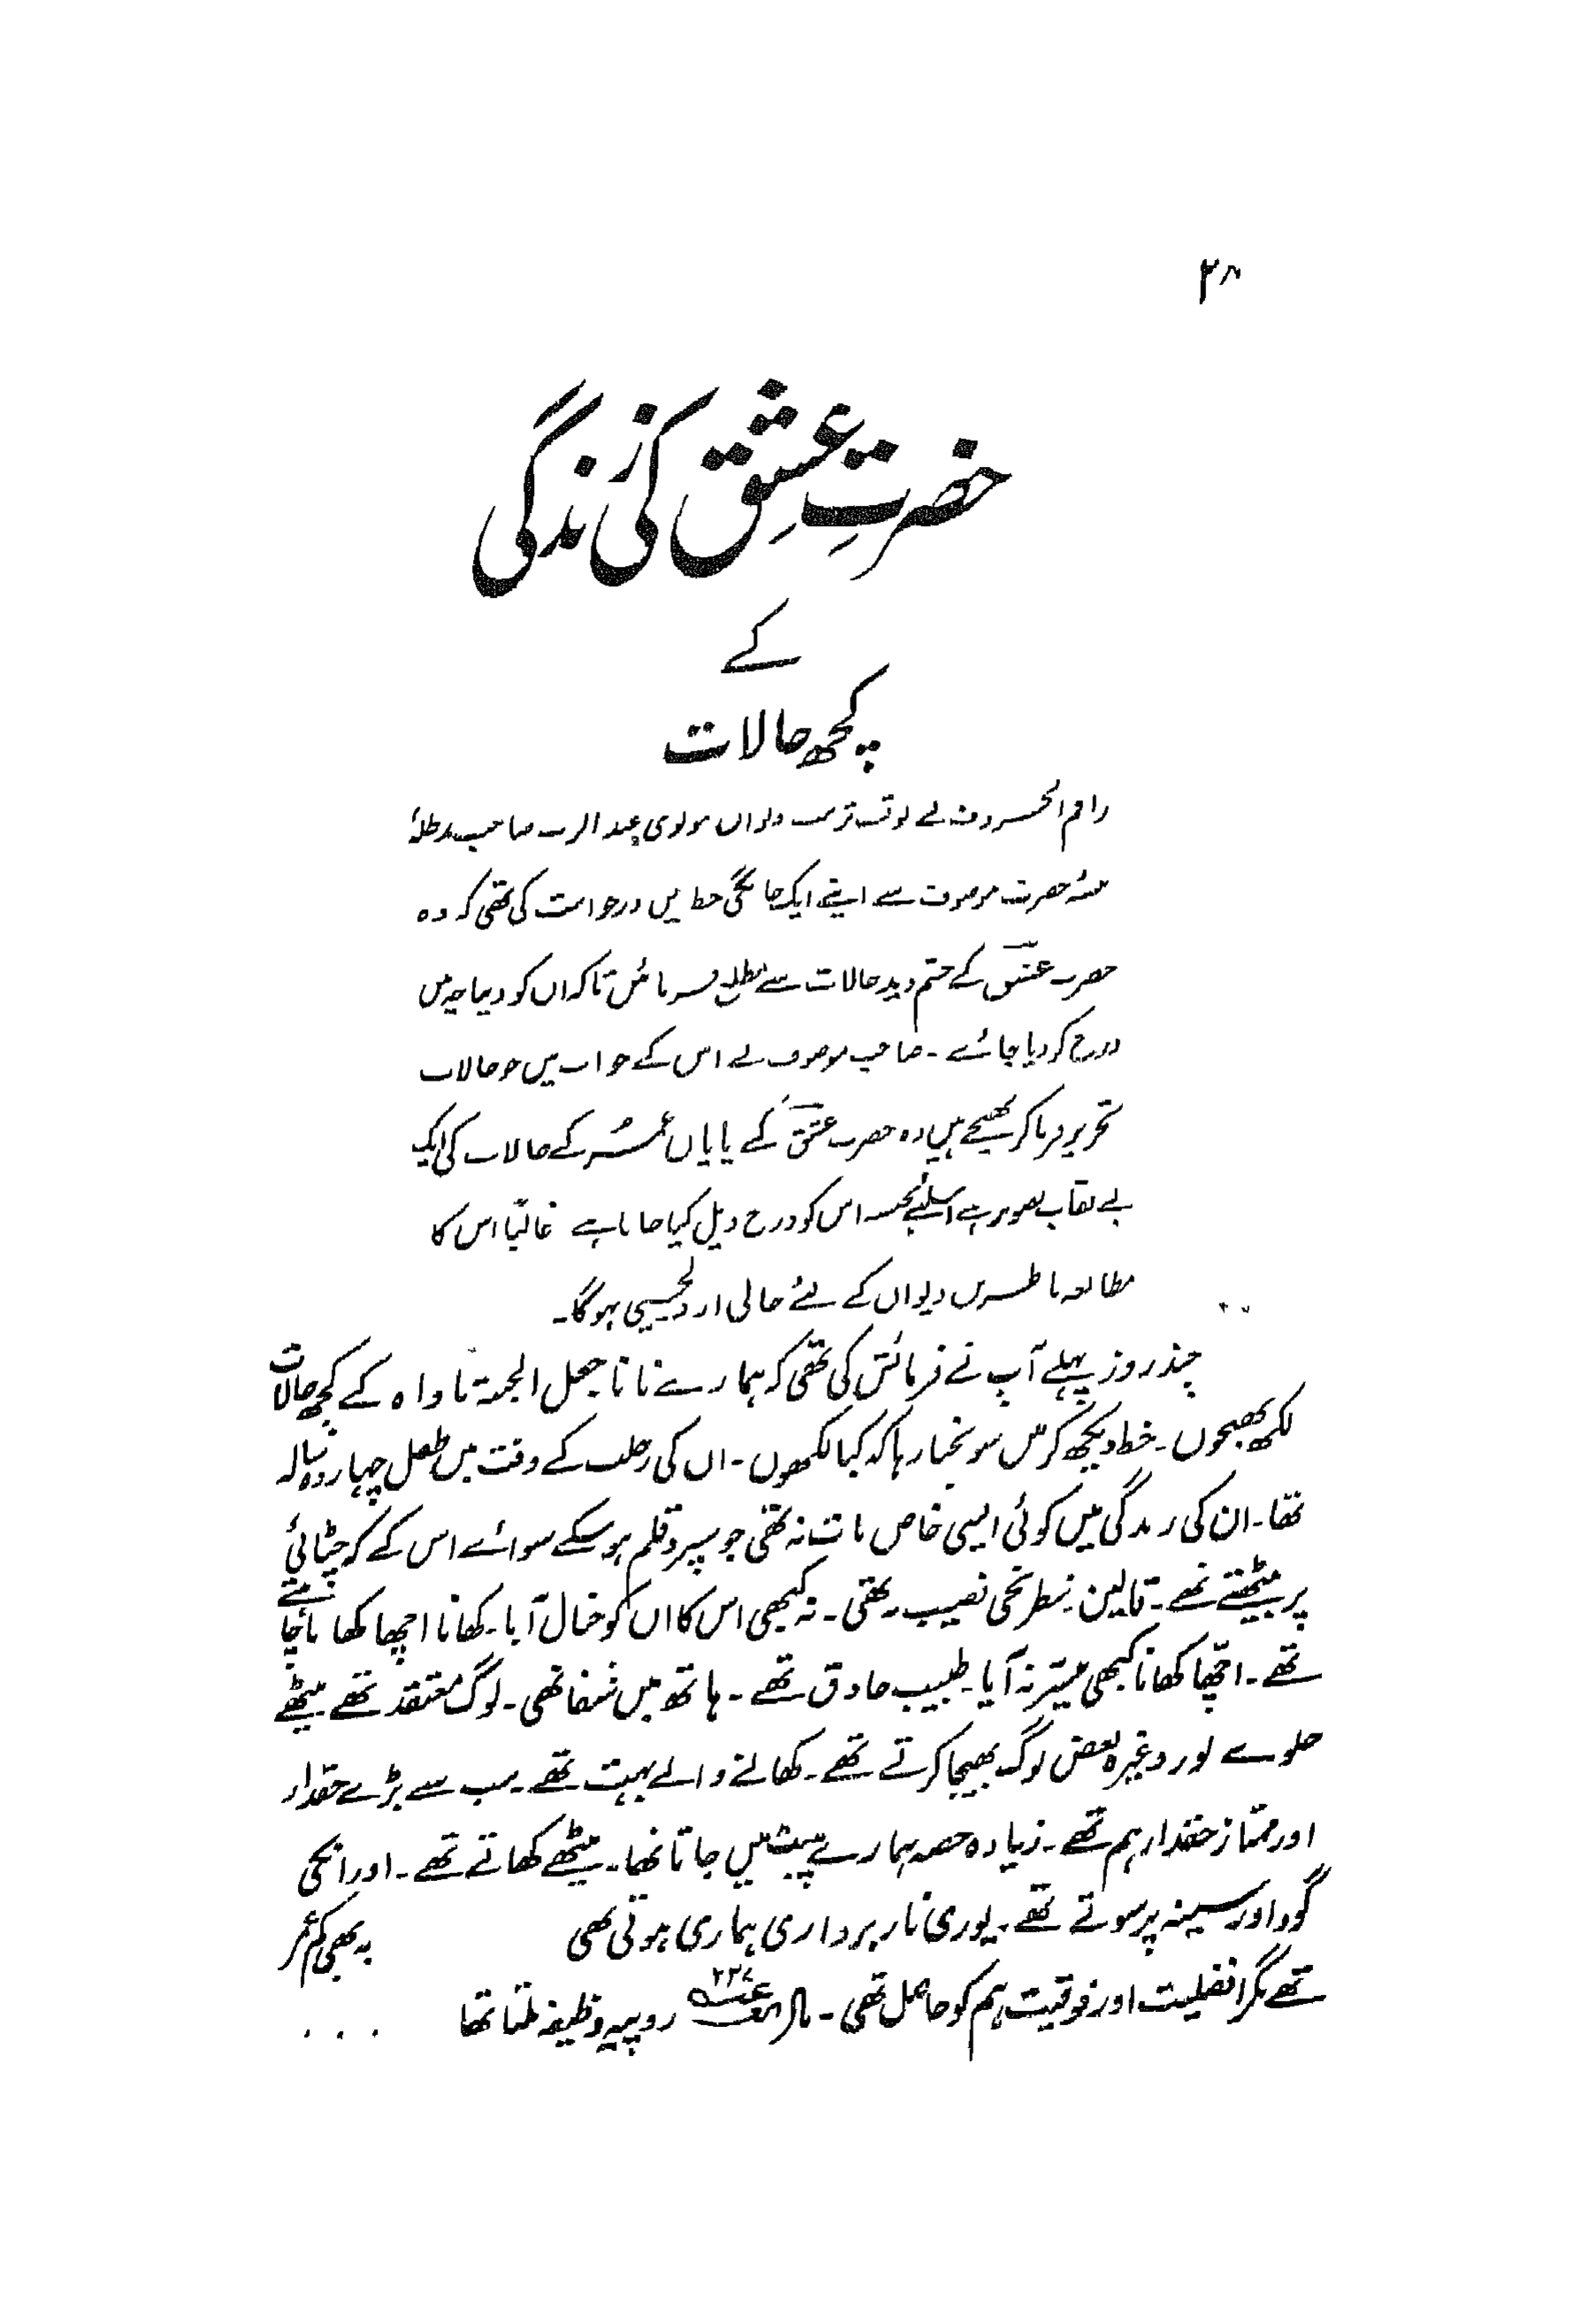 ۲۸
حضرتِ عشِق کی زندگی
کے
کچھ حالات
راقم الحروف نے بوقت ترتیب دیوان مولوی عبد الرب صاحب مدظلہٗ
حضرت موصوف سے اپنے ایک خانگی خط میں درخواست کی تھی کہ وہ
حضرت عشق کے چشم دید حالات سے مطلع فرمائیں تاکہ ان کو دیباچہ میں
درج کر دیا جائے ۔ صاحب موصوف نے اس کے جواب میں جو حالات
تحریر فرما کر بھیجے ہیں وہ حضرت عشق کے پایاں عمر کے حالات کی ایک
بے نقاب تصویر ہے اسلئے بجنسہ اس کو درج ذیل کیا جاتا ہے غالبًا اس کا
مطالعہ ناظرین دیوان کے لئے خالی از دلچسپی ہوگا ۔
چند روز پہلے آپ نے فرمائش کی تھی کہ ہمارے نانا جعل الجنۃ ماواہ کے کچھ حالات
لکھ بھیجوں ۔ خط دیکھ کر میں سونچتا رہا کہ کیا لکھوں ۔ ان کی رحلت کے وقت میں طفل چہاردہ سالہ
تھا ۔ ان کی زندگی میں کوئی ایسی خاص بات نہ تھی جو سپرد قلم ہو سکے سوائے اس کے کہ چٹائی
پر بیٹھتے تھے ۔ قالین شطرنجی نصیب نہ تھی ۔ نہ کبھی اس کا ان کو خیال آیا ۔ کھانا اچھا کھانا جانتے
تھے ۔ اچھا کھانا کبھی میسّر نہ آیا ۔ طبیب حاذق تھے ۔ ہاتھ میں شفا تھی ۔ لوگ معتقد تھے میٹھے
حلوے اور وغیرہ بعض لوگ بھیجا کرتے تھے ۔ کھانے والے بہت تھے ۔ سب سے بڑے حقدار
اور ممتاز حقدار ہم تھے ۔ زیادہ حصہ ہمارے پیٹ میں جاتا تھا ۔ میٹھے کھاتے تھے ۔ اور انکی
گود اور سینہ پر سوتے تھے ۔ پوری ناز برداری ہماری ہوتی تھی یہ بھی کم عمر
تھے مگر افضلیت اور فوقیت ہم کو حاصل تھی ۔ روپیہ وظیفہ ملتا تھا . . .